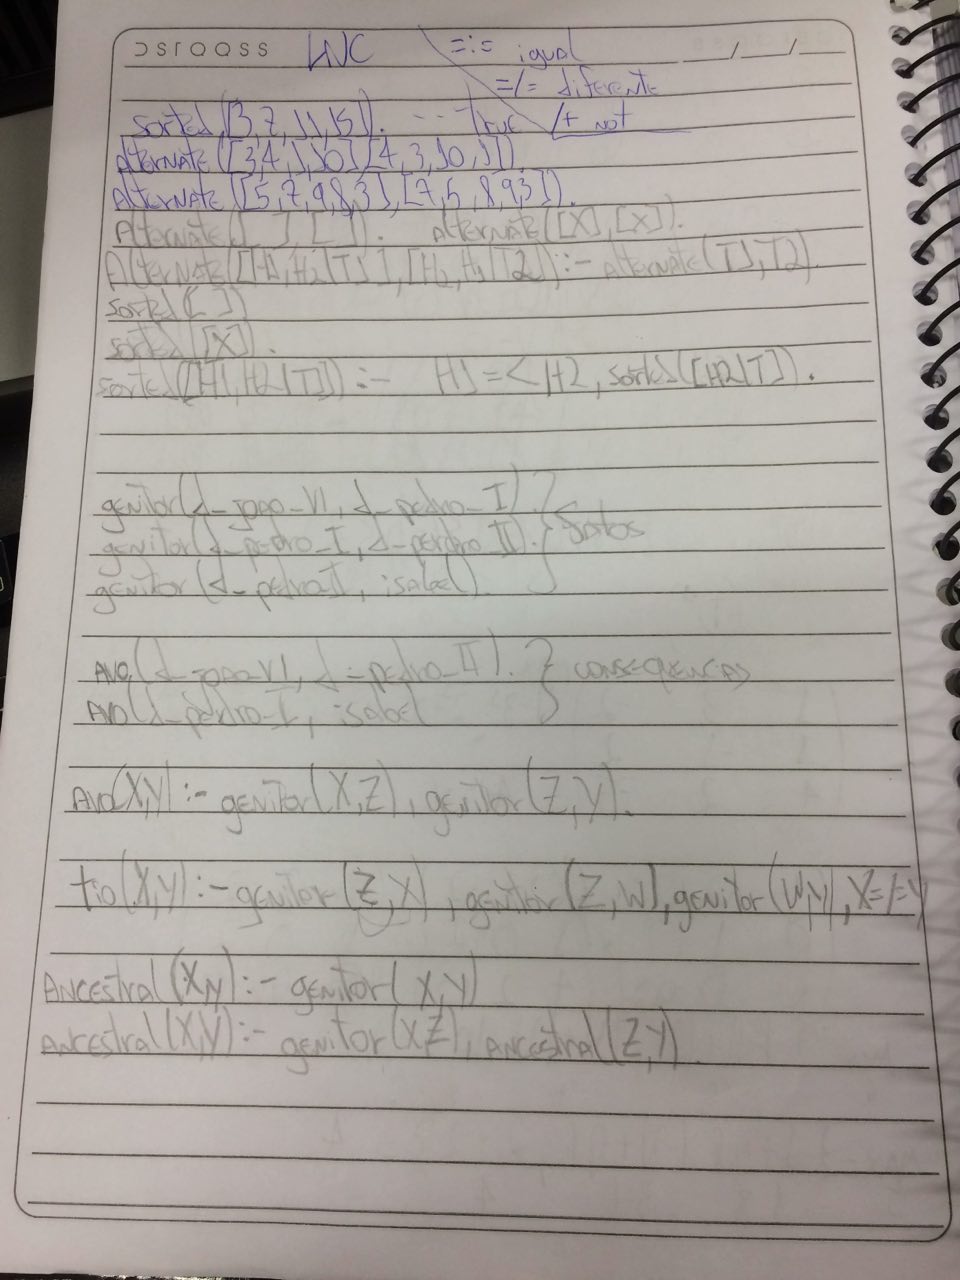 DSTQQSS LNC =:= igual __/__/__
=/= diferente
sorted([3,7,11,15]). -- True /+ not
Alternate([3,4,1,10][4,3,10,1])
Alternate([5,7,9,8,3],[7,5,8,9,3]).
Alternate([ ],[ ]). Alternate([X],[X]).
Alternate([H1,H2|T1],[H2,H1|T2]):- alternate(T1,T2).
sorted([ ])
sorted([X]).
sorted([H1,H2|T]):- H1=<H2, sorted([H2|T]).
genitor(d_joao_VI, d_pedro_I). } fatos
genitor(d_pedro_I, d_perdro_II).
genitor(d_pedroII, isabel).
Avo(d_joao_VI, d_pedro_II). } consequências
Avo(d_pedro_I, isabel
Avo(X,Y):- genitor(X,Z), genitor(Z,Y).
tio(X,Y):- genitor(Z,X), genitor(Z,W), genitor(W,Y), X=/=Y
Ancestral(X,Y):- genitor(X,Y)
Ancestral(X,Y):- genitor(X,Z), Ancestral(Z,Y).